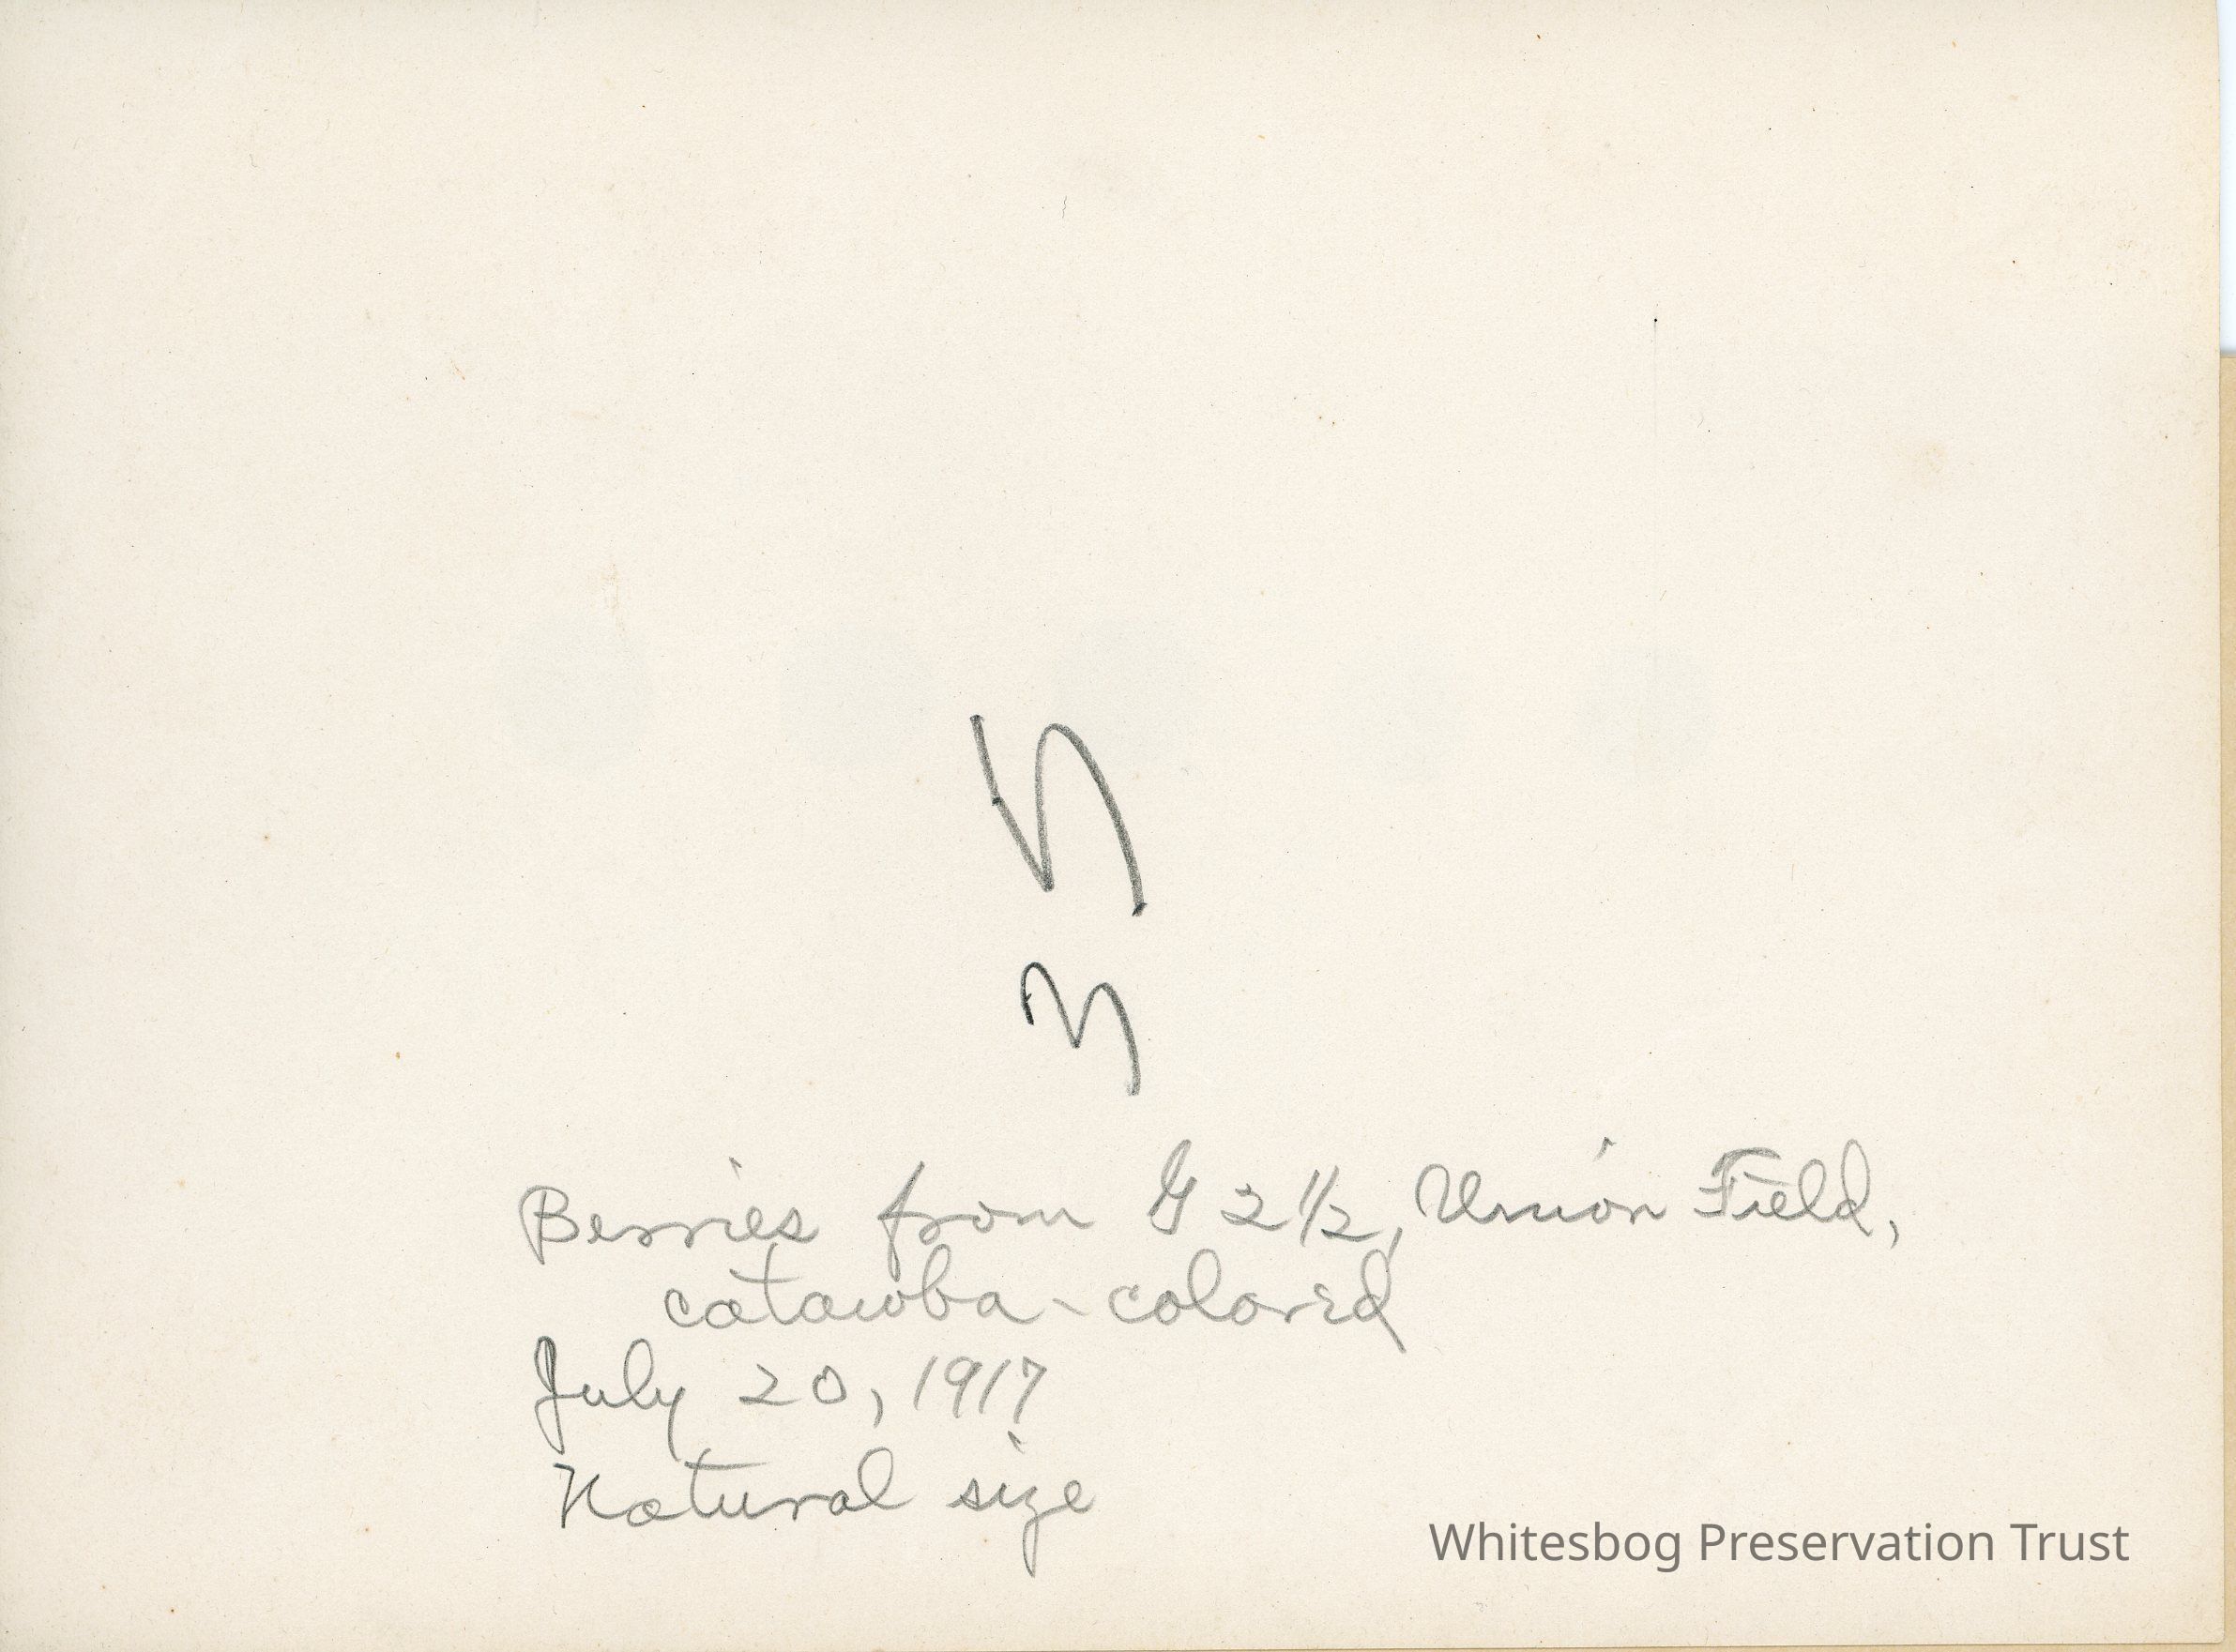 Berries from G 2 1/2, Union Field,
catawba-colored
July 20, 1917
Natural size
Whitesbog Preservation Trust